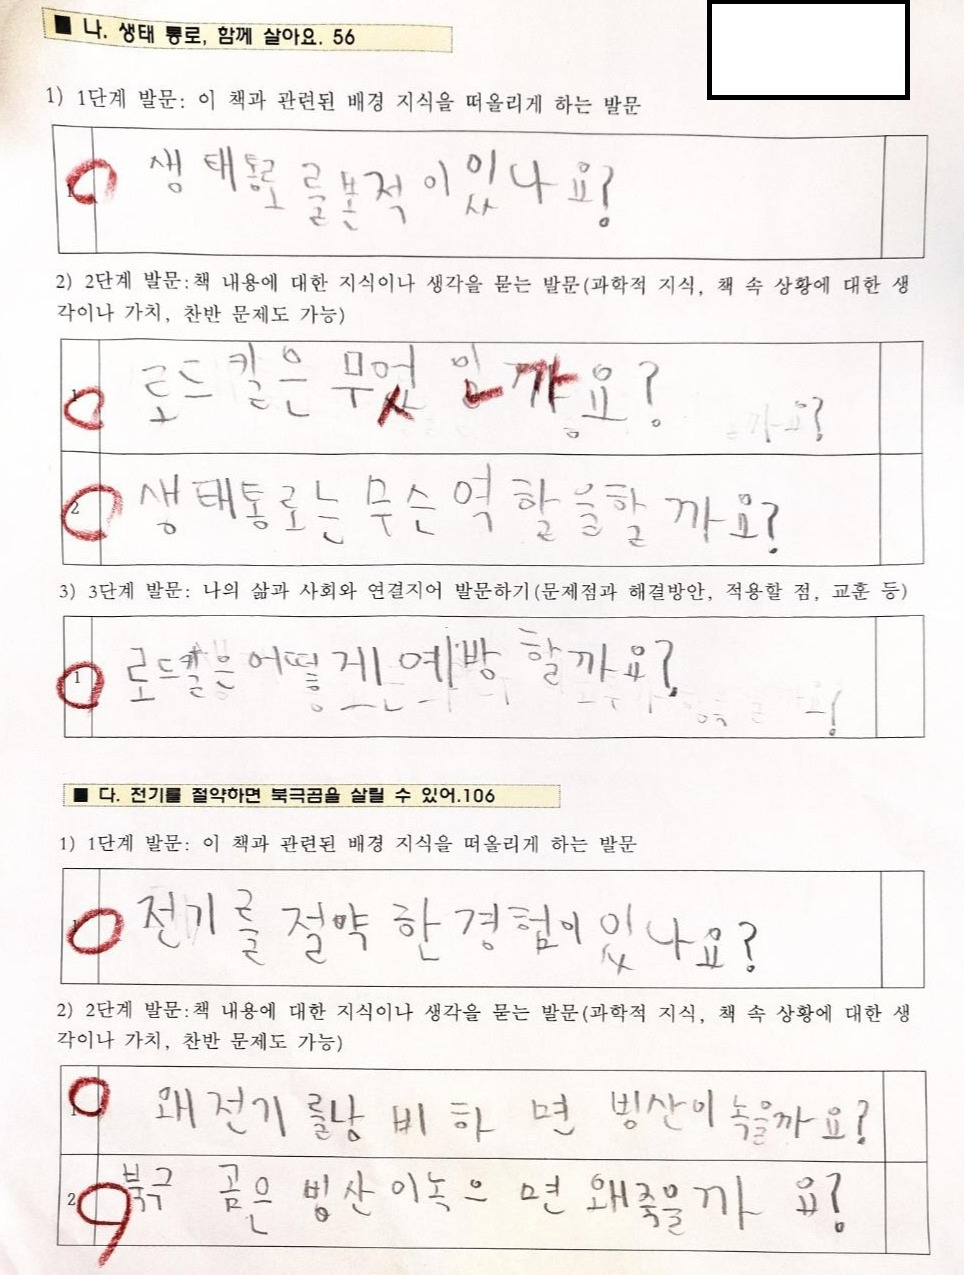 ■ 나. 생태 통로, 함께 살아요. 56
1) 1단계 발문: 이 책과 관련된 배경 지식을 떠올리게 하는 발문
1 생태통로를본적이있나요?
2) 2단계 발문:책 내용에 대한 지식이나 생각을 묻는 발문(과학적 지식, 책 속 상황에 대한 생
각이나 가치, 찬반 문제도 가능)
1 로드킬은 무엇 인까요?
까요?
2 생태통로는 무슨 역할을할까요?
3) 3단계 발문: 나의 삶과 사회와 연결지어 발문하기(문제점과 해결방안, 적용할 점, 교훈 등)
1 로드킬은 어떻게 예방 할까요?
■ 다. 전기를 절약하면 북극곰을 살릴 수 있어.106
1) 1단계 발문: 이 책과 관련된 배경 지식을 떠올리게 하는 발문
1 전기를 절약 한 경험이 있나요?
2) 2단계 발문:책 내용에 대한 지식이나 생각을 묻는 발문(과학적 지식, 책 속 상황에 대한 생
각이나 가치, 찬반 문제도 가능)
1 왜 전기를낭비하면 빙산이 녹을까요?
2 북구 곰은 빙산이녹으면 왜죽을까요?